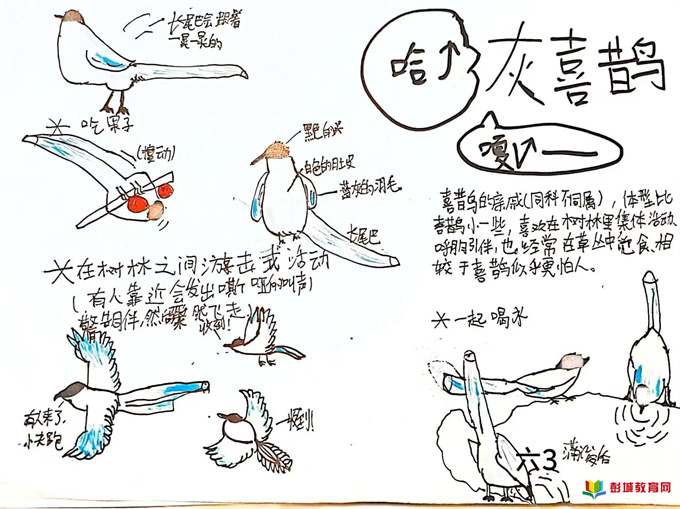 长尾巴会翘着
一晃一晃的
哈↑
灰喜鹊
嘎↗——
*吃果子
(震动)
黑色的头
白色的肚皮
蓝灰的羽毛
长尾巴
喜鹊的亲戚(同科不同属)，体型比
喜鹊小一些，喜欢在树林里集体活动
呼朋引伴，也经常在草丛中觅食，相
较于喜鹊似乎更怕人。
*在树林之间游击式活动
(有人靠近会发出嘶哑的叫声)
警告同伴，然后飞走
收到!
有人来了，
快跑
收到!
*一起喝水
六3
彭城教育网